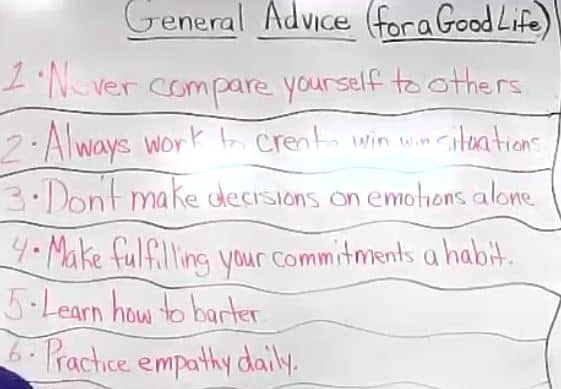 General Advice (for a Good Life)
1. Never compare yourself to others
2. Always work to create win win situations
3. Don't make decisions on emotions alone
4. Make fulfilling your commitments a habit.
5. Learn how to barter
6. Practice empathy daily.